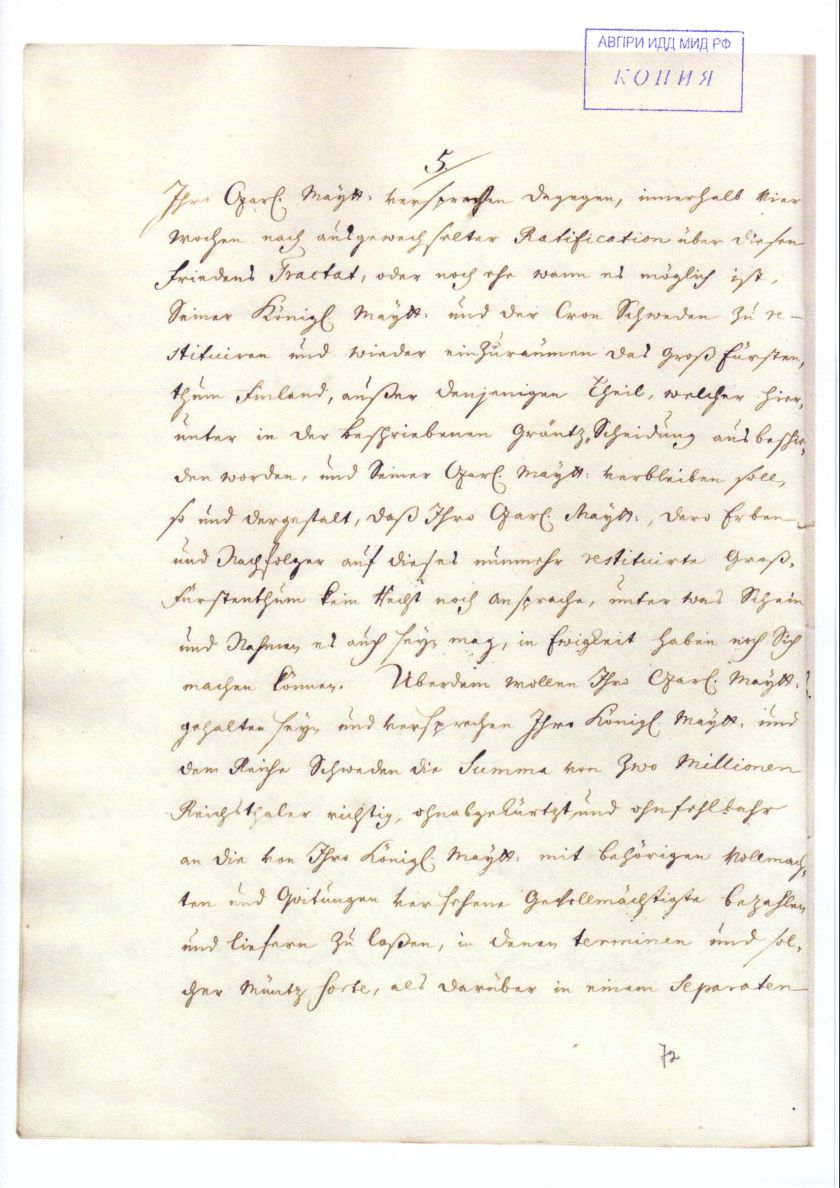 АВПРИ ИДД МИД РФ
КОПИЯ
5
Ihro Czarl. Mäytt: versprechen dagegen, innerhalb vier
wochen nach ausgewechselter Ratification über diesen
Friedens Tractat, oder noch ehe wann es möglich ist,
Seiner Königl Mäytt: und der Cron Schweden zu re-
stituiren und wieder einzuräumen das Groß Fürsten,
thum Finland, außer denjenigen Theil, welcher hier,
unter in der beschriebenen Gräntz-Scheidung ausbeschie-
den worden, und Seiner Czarl. Mäytt: verbleiben soll,
so und dergestalt, daß Ihro Czarl. Mäytt:, dero Erben
und Nachfolger auf dieses nunmehr restituirte Groß-
Fürstenthum kein Recht noch Ansprache, unter was Schein
und Nahmen es auch seyn mag, in Ewigkeit haben noch Sich
machen können. Überdem wollen Ihro Czarl. Mäytt:
gehalten seyn und versprechen Ihro Königl. Mäytt: und
dem Reiche Schweden die Summa von Zwo Millionen
Reichsthaler richtig, ohnabgekürtzt und ohnfehlbahr
an die von Ihro Königl. Mäytt: mit behörigen Vollmach-
ten und Qvitungen versehene Gevollmächtigte bezahlen
und liefern zu laßen, in denen terminen und sol-
cher Müntz Sorte, als darüber in einem Separaten
72